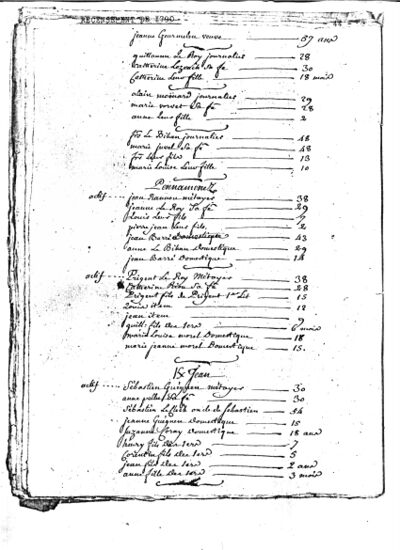 RECENSEMENT DE 1790
jeanne veuve 57 ans
guillaume Le Roy journalier 28
Catherine Sa fe 30
Catherine Leur fille 18 mois
alain journalier 29
marie Sa fe 28
anne Leur fille 2
fois Le Bihan journalier 48
marie juvel Sa fe 48
fois Leur fils 13
marie Louise Leur fille 10
Pennamenez
actif jean Rannou métayer 38
jeanne Le Roy Sa fe 29
Louis Leur fils 7
pierre jean Leur fils 2
jean Barré Domestique 43
anne Le Bihan Domestique 29
jean Barré Domestique 14
actif Prigent Le Roy Métayer 38
Catherine Sa fe 28
Prigent fils de Prigent 1er Lit 15
item 12
jean item
guill: fils Du 6 mois
marie Louise morel Domestique 18
marie jeanne morel Domestique 15
St Jean
actif Sébastien Guéguen métayer 30
anne Sa fe 30
Sébastien oncle de Sébastien 54
jeanne Guéguen Domestique 15
Suzanne Domestique 18 ans
henry fils Du 7
Corentin fils Du 5
jean fils Du 2 ans
anne fille Du 3 mois